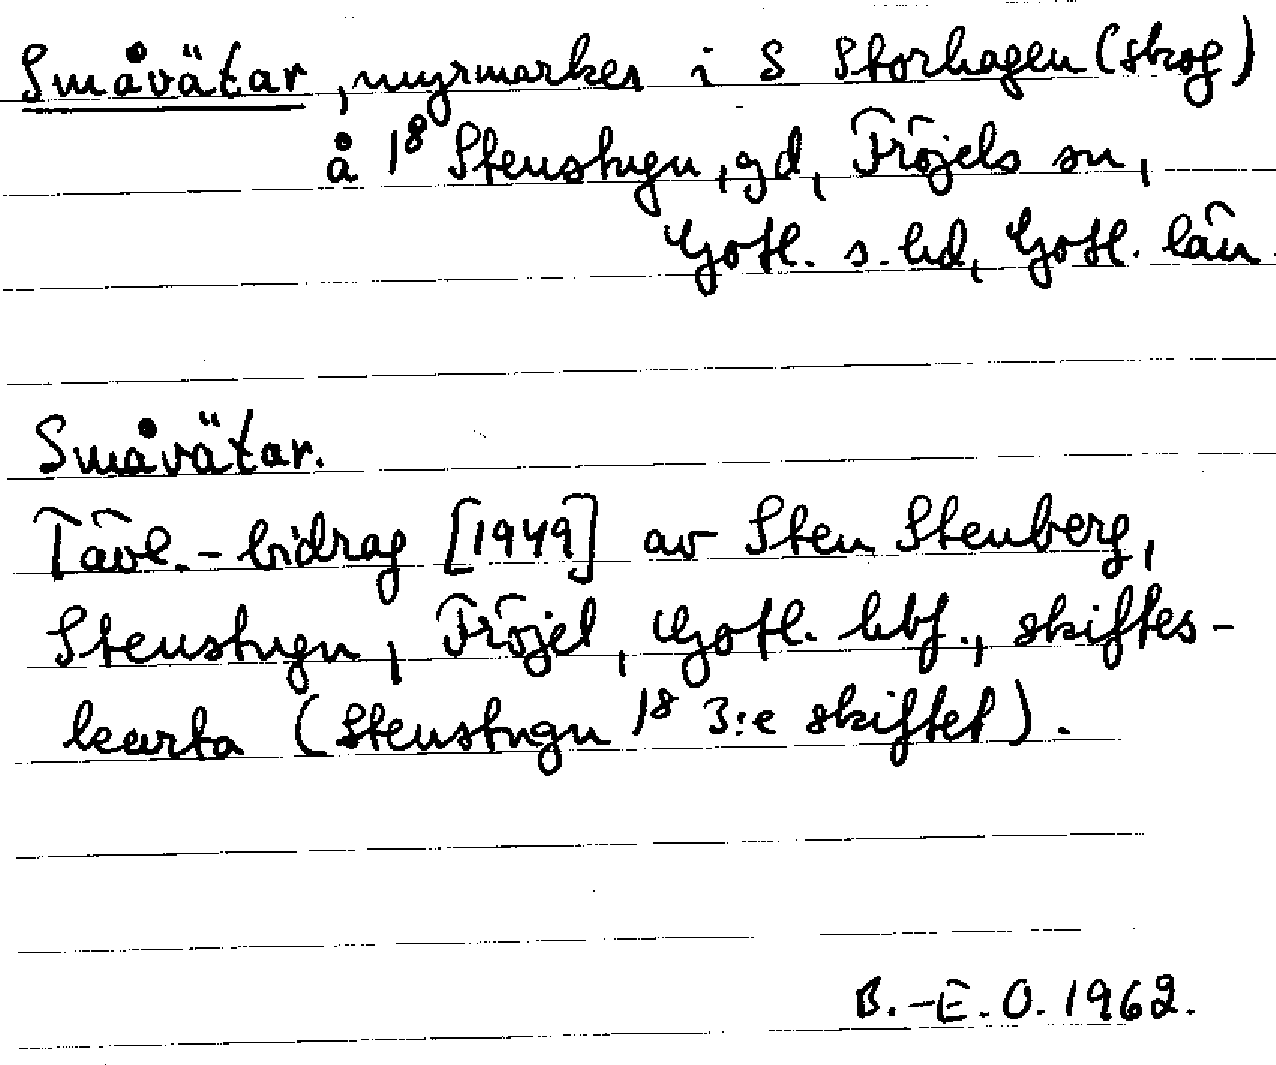 Småvätar, myrmarker i S Storhagen (skog)
å 1⁸ Stenstugu, gd, Fröjels sn,
Gotl. s. hd, Gotl. län
Småvätar.
Tävl.-bidrag [1949] av Sten Stenberg,
Stenstugu, Fröjel, Gotl. hbf., skiftes-
karta (Stenstugu 1⁸ 3:e skiftet).
B.-E. O. 1962.